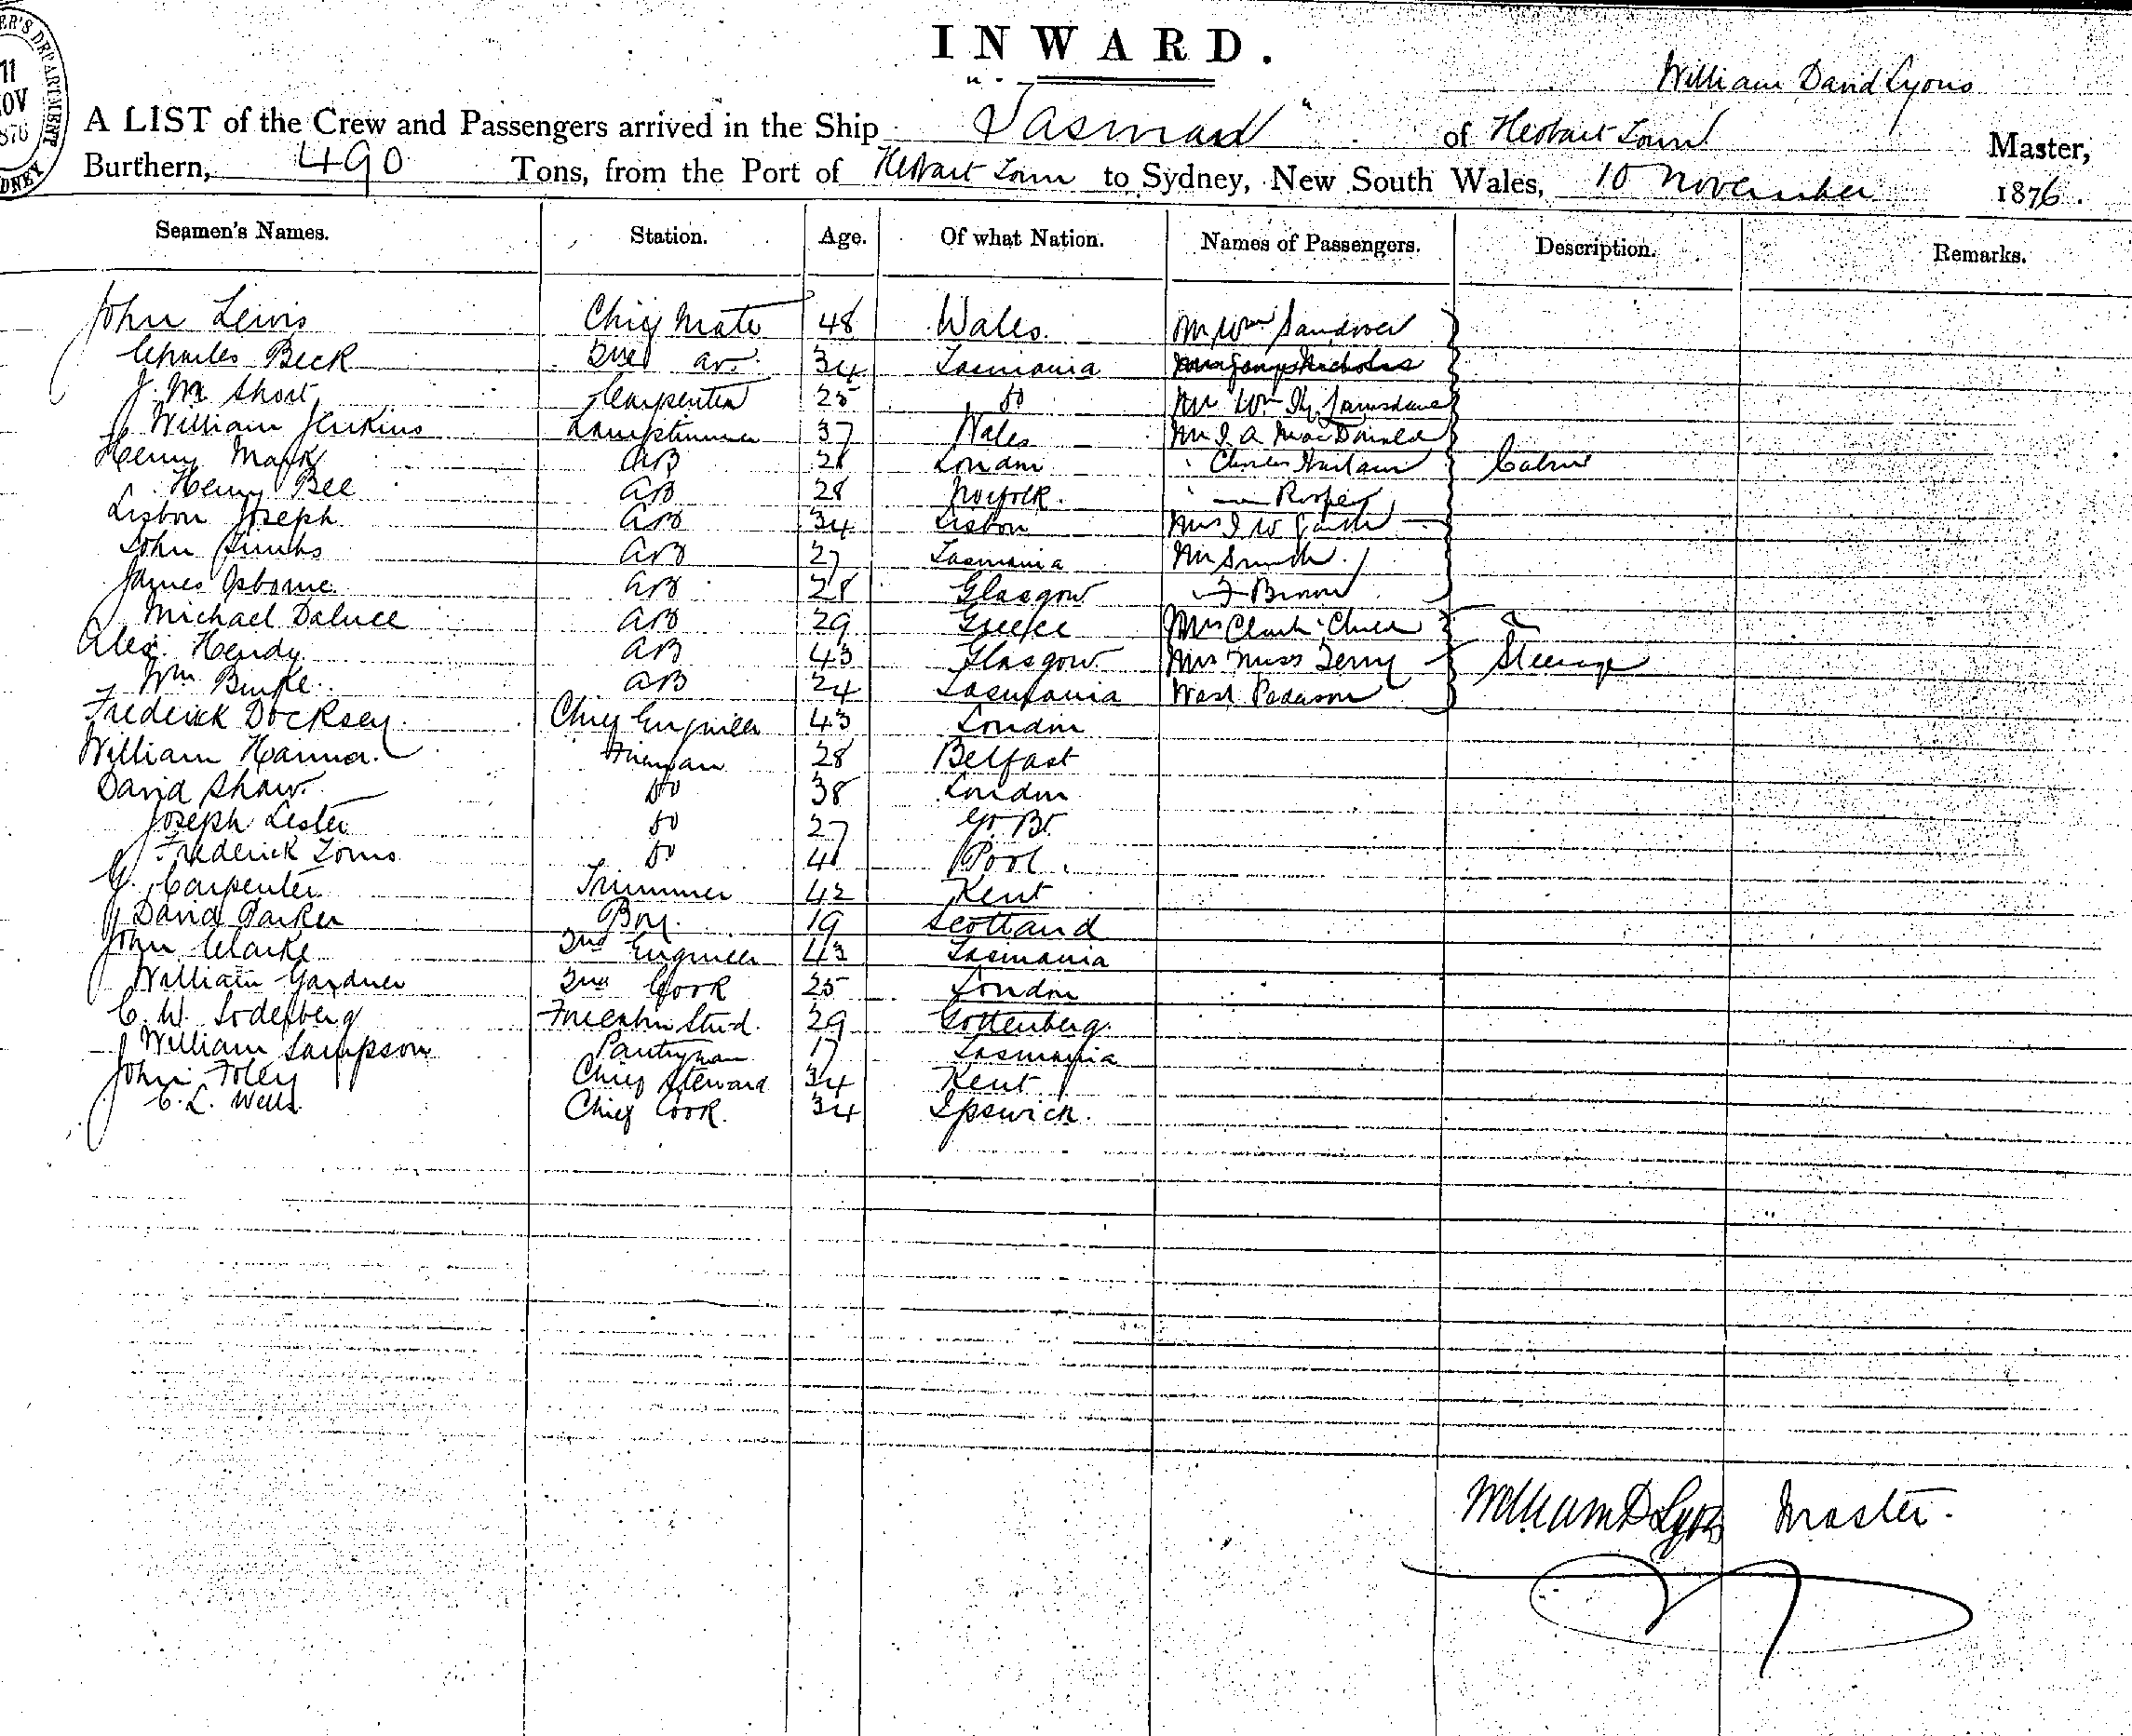 INWARD.
William David Lyons
A LIST of the Crew and Passengers arrived in the Ship "Tasman" of Hobart Town Master,
Burthern, 490 Tons, from the Port of Hobart Town to Sydney, New South Wales, 10 November 1876.
Seamen's Names. Station. Age. Of what Nation. Names of Passengers. Description. Remarks.
John Lewis Chief Mate 48 Wales. Mr Wm
Charles Beck 2nd 34 Tasmania
J. M Short Carpenter 25 Do Mr Wm
William Jenkins Lamptrimmer 37 Wales Mr J A MacDonald
Henry Mark AB 28 London Charles Cabin
Henry Bee AB 28 Norfolk. Roope
Lisbon Joseph AB 34 Lisbon Mrs J W
John AB 27 Tasmania Mr Smith
James Osborne AB 28 Glasgow J Brown
Michael Daluce AB 29 Greece Mrs Clark
Alex. Hendy AB 43 Glasgow Mrs Miss Terry Steerage
Wm Burke AB 24 Tasmania
Frederick Docksey. Chief Engineer 43 London
William Hanna. Fireman 28 Belfast
David Shaw. Do 38 London
Joseph Lester Do 27 Gr Br.
Frederick Toms Do 41 Pool.
G. Carpenter Trimmer 42 Kent
David Parker Boy. 19 Scotland
John Clarke 2nd Engineer 43 Tasmania
William Gardner 2nd Cook 25 London
C. W. Soderberg Fore Cabin Stwd. 29 Gottenberg.
William Sampson Pantryman 17 Tasmania
John Foley Chief Steward 34 Kent
C. L. Wells. Chief Cook. 34 Ipswich.
William D Lyons Master.